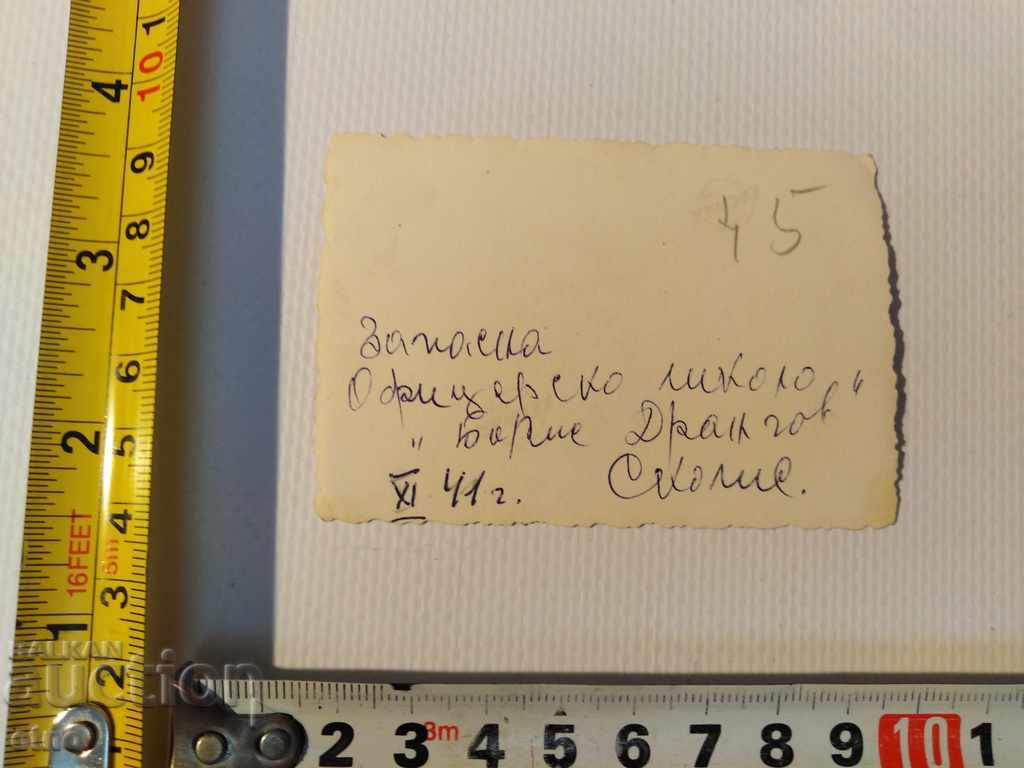 45
Запасна
Офицерско школо
„Борис Дрангов"
XI 41 г. Скопие.
4 3 2 1
1 10 9 8 7 6 5 4 3 2
16FEET
5m
BALKAN
auction
2 3 3m 4 5 6 7 8 9 10 1